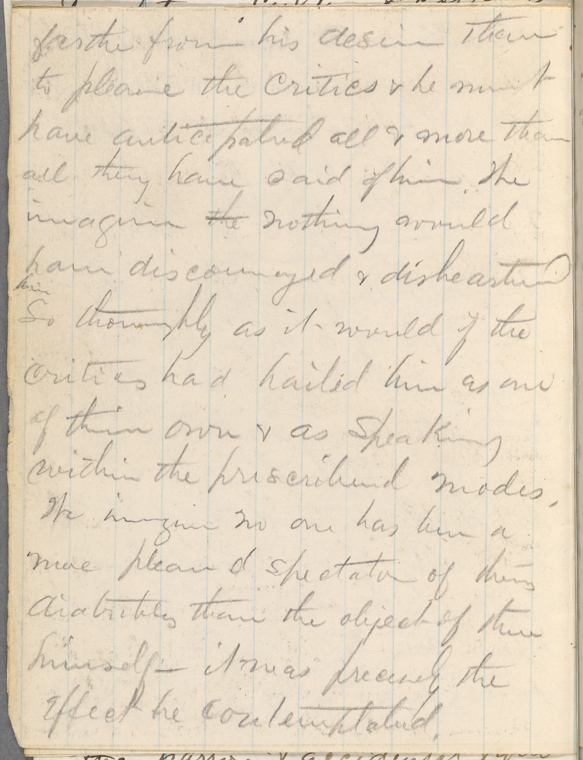 farther from his desire than
to please the critics & he must
have anticipated all & more than
all they have said of him. We
imagine the nothing would
have discouraged & disheartened
him
so thoroughly as it would if the
critics had hailed him as one
of their own & as speaking
within the prescribed modes.
We imagine no one has been a
more pleased spectator of these
diatribes than the object of them
himself — it was precisely the
effect he contemplated.